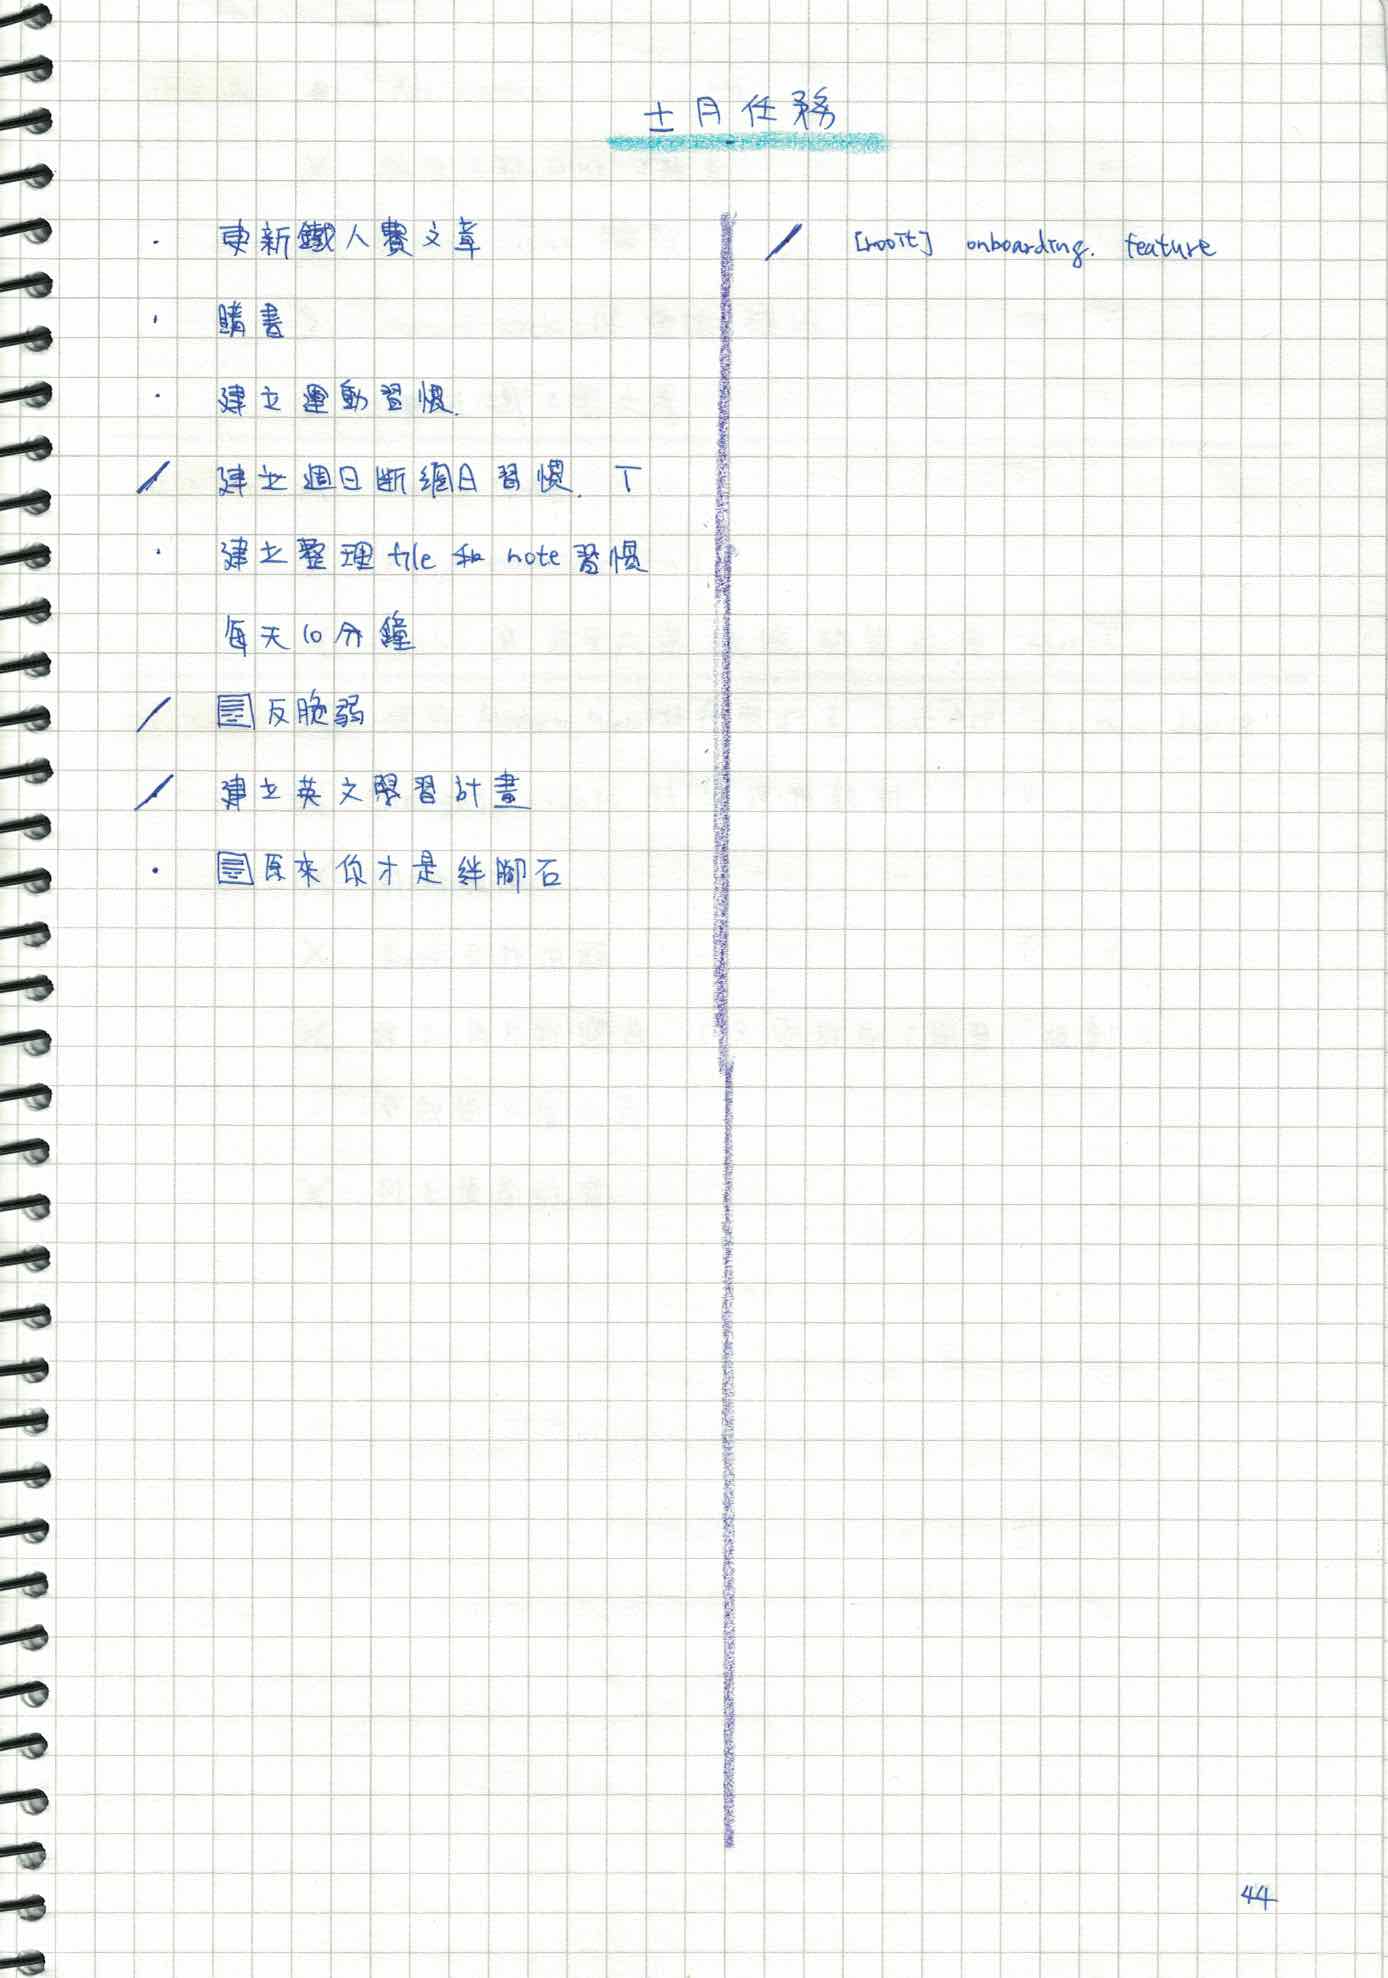 十一月任務
· 更新鐵人賽文章
· 購書
· 建立運動習慣.
/ 建立週日斷網日習慣. T
· 建立整理 file 和 note 習慣
每天10分鐘
/ 反脆弱
/ 建立英文學習計畫
· 原來你才是絆腳石
/ [rooit] onboarding. feature
44